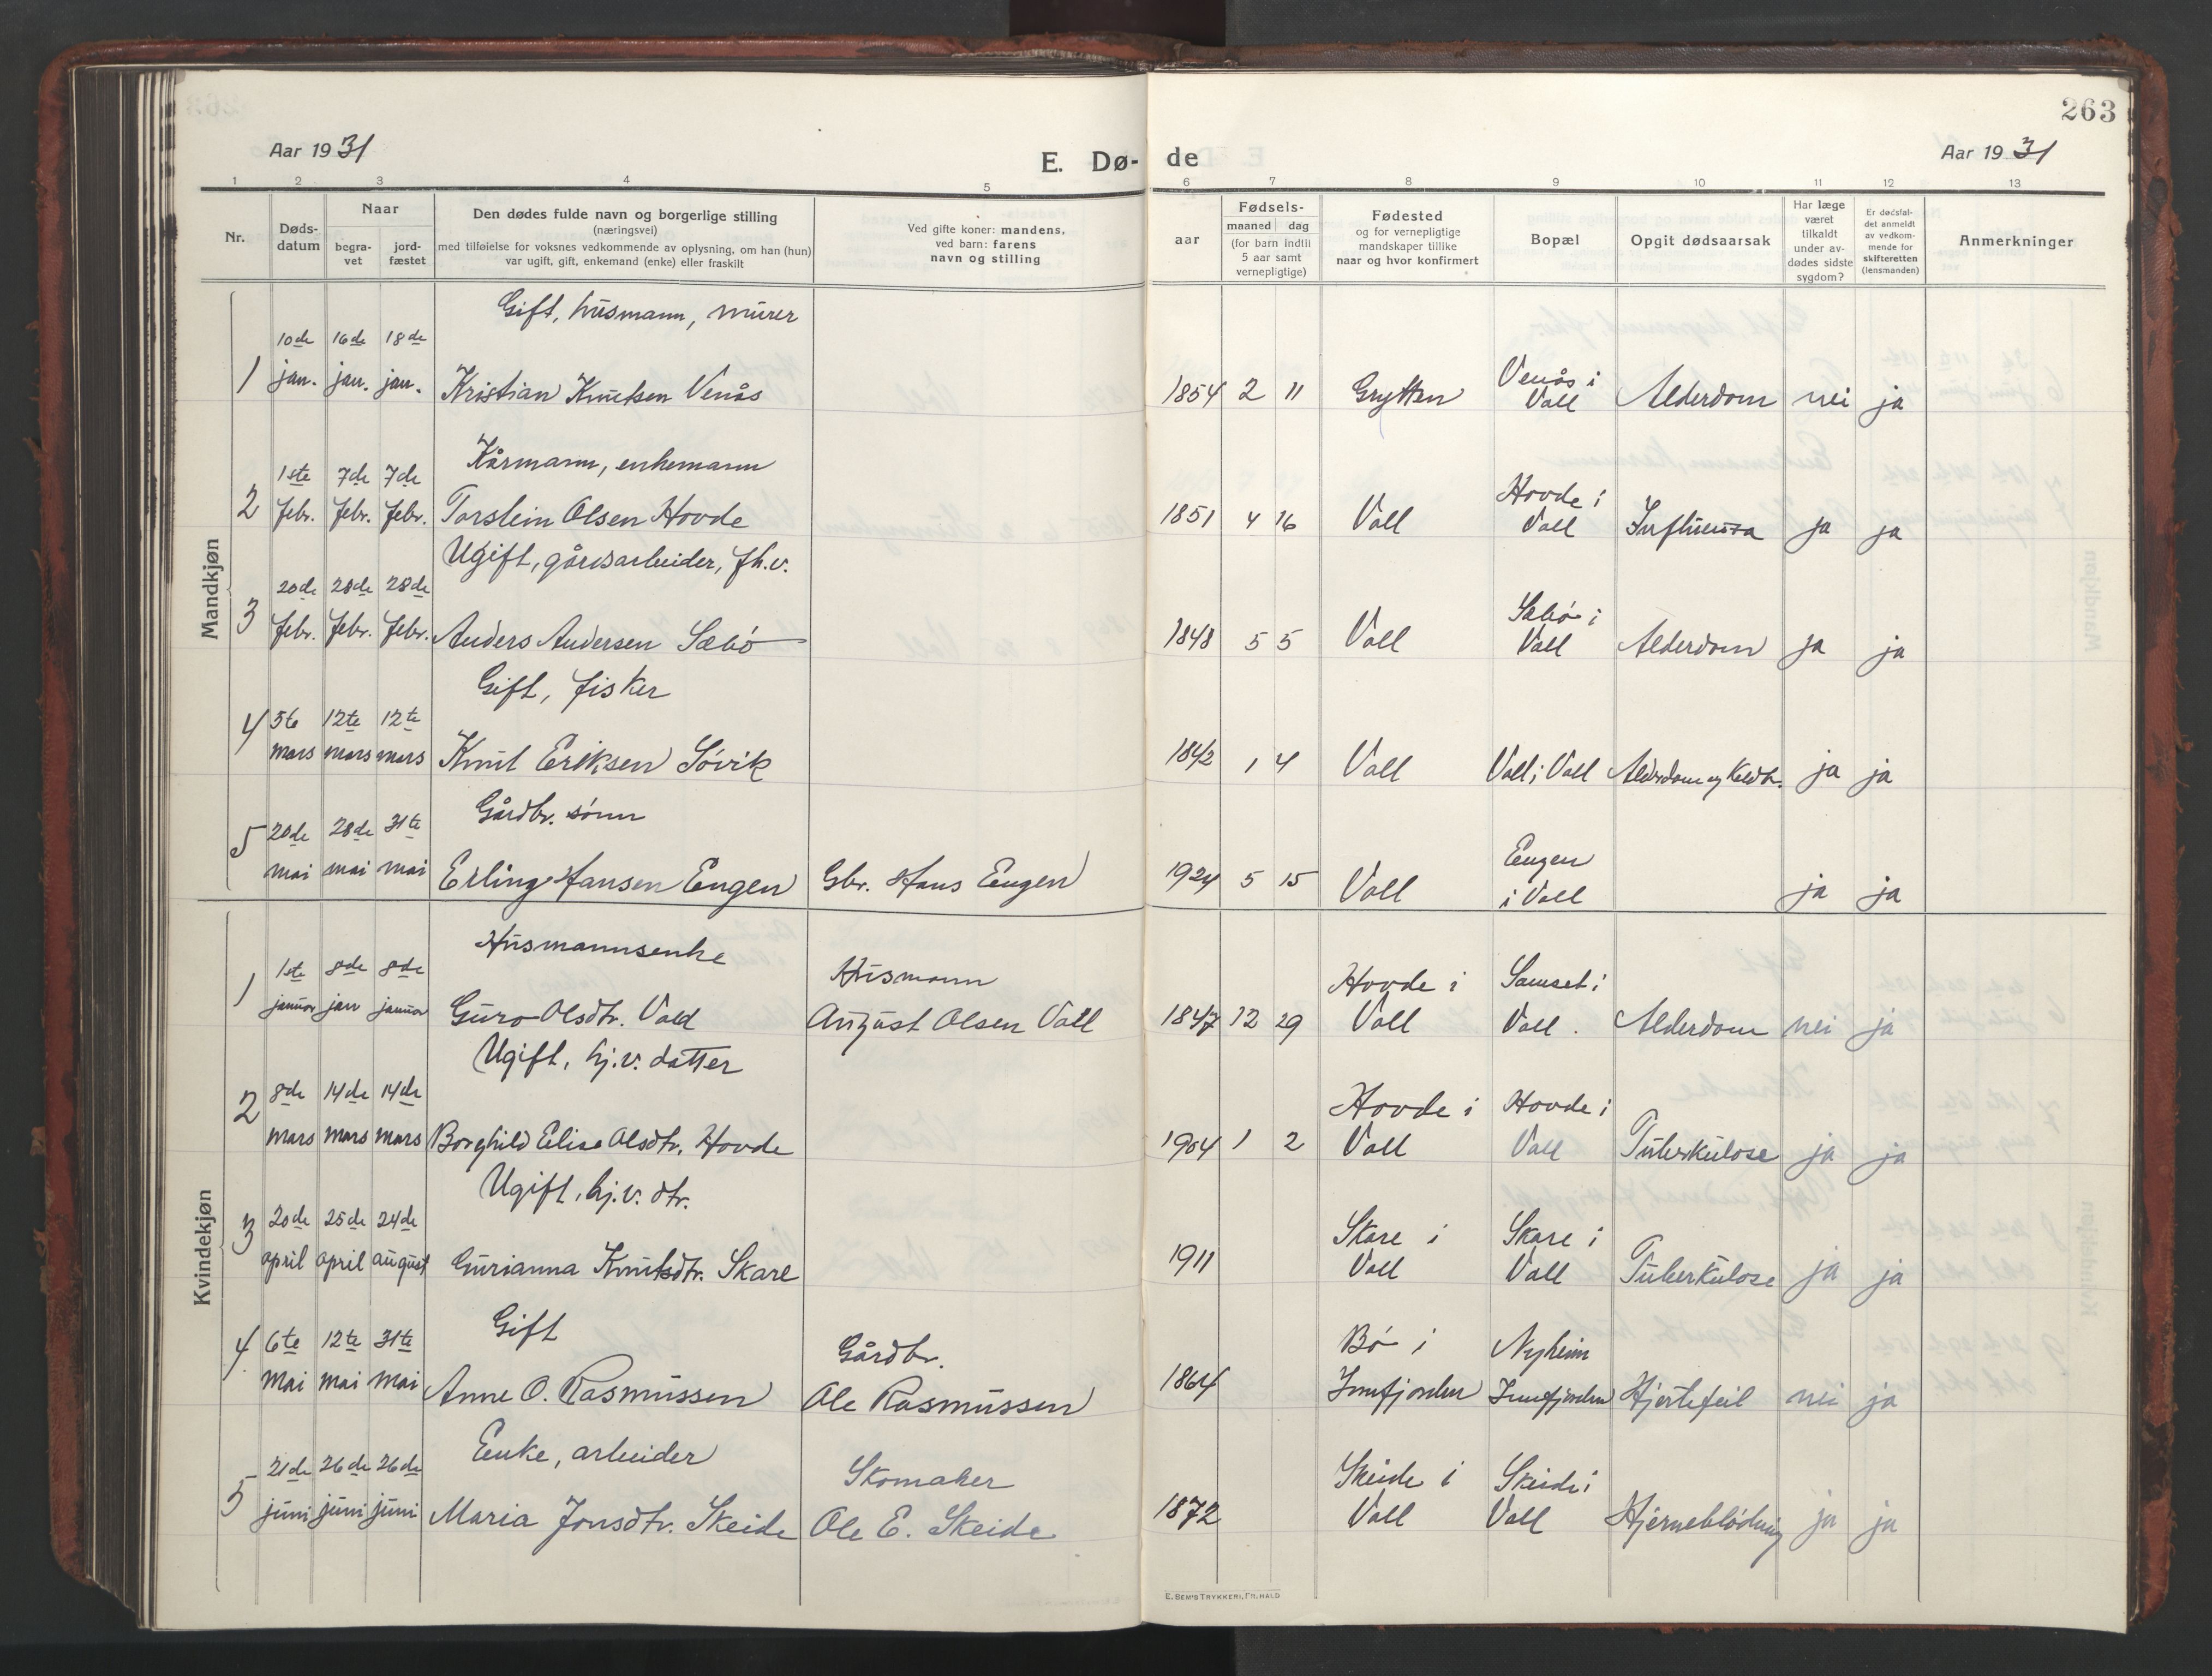 263
Aar 1931
E. Dø-
de
Aar 1931
1 2 3 4 5 6 7 8 9 10 11 12 13
Nr.
Døds-
datum
Naar
begra-
vet
jord-
fæstet
Den dødes fulde navn og borgerlige stilling
(næringsvei)
med tilføielse for voksnes vedkommende av oplysning, om han (hun)
var ugift, gift, enkemand (enke) eller fraskilt
Ved gifte koner: mandens,
ved barn: farens
navn og stilling
aar
Fødsels-
maaned dag
(for barn indtil
5 aar samt
vernepligtige)
Fødested
og for vernepligtige
mandskaper tillike
naar og hvor konfirmert
Bopæl
Opgit dødsaarsak
Har læge
været
tilkaldt
under av-
dødes sidste
sygdom?
Er dødsfal-
det anmeldt
av vedkom-
mende for
skifteretten
(lensmanden)
Anmerkninger
Mandkjøn
Gift, husmann, murer
10de 16de 18de
Venås i
1 jan. jan. jan. Kristian Knutsen Venås 1854 2 11 Grytten Voll Alderdom nei ja
Kårmann, enkemann
1ste 7de 7de
Hovde i
2 febr. febr. febr. Torstein Olsen Hovde 1851 4 16 Voll Voll Influensa ja ja
Ugift, gårdsarbeider, fh.v.
20de 28de 28de
Sæbø i
3 febr. febr. febr. Anders Andersen Sæbø 1848 5 5 Voll Voll Alderdom ja ja
Gift, fisker
4 5te 12te 12te
mars mars mars Knut Eriksen Søvik 1842 1 4 Voll Voll i Voll Alderdom og Koldbr. ja ja
Gårdbr. sønn
5 20de 28de 31te
Engen
mai mai mai Erling Hansen Engen Gbr. Hans Engen 1924 5 15 Voll i Voll ja ja
Kvindekjøn
Husmannsenke
1ste 8de 8de Husmann Hovde i Samset i
1 januar jan januar Guro Olsdtr. Voll August Olsen Voll 1847 12 29 Voll Voll. Alderdom nei ja
Ugift, hj.v. datter
2 8de 14de 14de Hovde i Hovde i
mars mars mars Borghild Elise Olsdtr. Hovde 1904 1 2 Voll Voll Tuberkulose ja ja
Ugift, hj.v. dtr.
3 20de 25de 24de Skare i Skare i
april april august Gurianna Knutsdtr. Skare 1911 Voll Voll Tuberkulose ja ja
Gift
4 6te 12te 31te Gårdbr. Bø i Nyheim
mai mai mai Anne O. Rasmussen Ole Rasmussen 1864 Innfjorden Innfjorden Hjertefeil nei ja
Enke, arbeider
21de 26de 26de Skomaker Skeide i Skeide i
5 juni juni juni Maria Jonsdtr. Skeide Ole E. Skeide 1872 Voll Voll Hjerneblødning ja ja
E. SEM'S TRYKKERI, FR.HALD